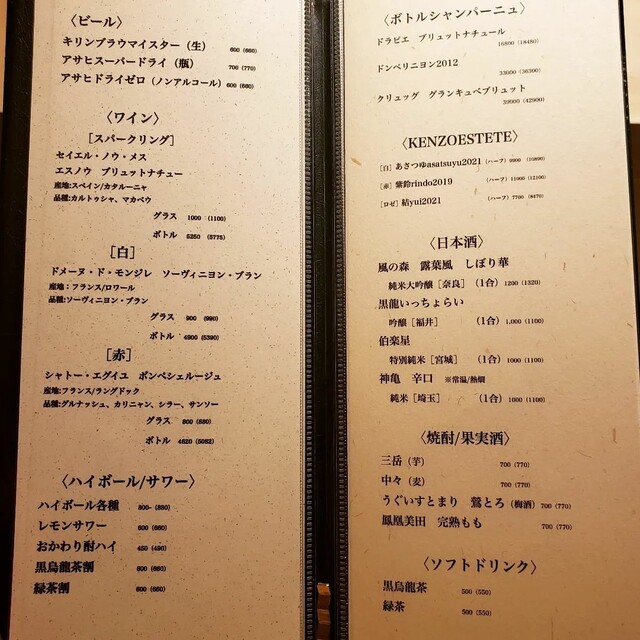 〈ビール〉
キリンブラウマイスター（生） 600 (660)
アサヒスーパードライ（瓶） 700 (770)
アサヒドライゼロ（ノンアルコール） 600 (660)
〈ワイン〉
［スパークリング］
セイエル・ノウ・メス
エスノウ ブリュットナチュー
産地:スペイン/カタルーニャ
品種:カルトゥシャ、マカベウ
グラス 1000 (1100)
ボトル 5250 (5775)
［白］
ドメーヌ・ド・モンジレ ソーヴィニヨン・ブラン
産地：フランス/ロワール
品種:ソーヴィニヨン・ブラン
グラス 900 (990)
ボトル 4900 (5390)
［赤］
シャトー・エグイユ ボンペシェルージュ
産地:フランス/ラングドック
品種:グルナッシュ、カリニャン、シラー、サンソー
グラス 800 (880)
ボトル 4620 (5082)
〈ハイボール/サワー〉
ハイボール各種 800~ (880)
レモンサワー 600 (660)
おかわり酎ハイ 450 (490)
黒烏龍茶割 600 (660)
緑茶割 600 (660)
〈ボトルシャンパーニュ〉
ドラピエ ブリュットナチュール
16800 (18480)
ドンペリニヨン2012
33000 (36300)
クリュッグ グランキュベブリュット
39000 (42900)
〈KENZOESTETE〉
［白］あさつゆasatsuyu2021 （ハーフ）9900 (10890)
［赤］紫鈴rindo2019 （ハーフ）11000 (12100)
［ロゼ］結yui2021 （ハーフ）7700 (8470)
〈日本酒〉
風の森 露葉風 しぼり華
純米大吟醸［奈良］ （1合）1200 (1320)
黒龍いっちょらい
吟醸［福井］ （1合）1,000 (1100)
伯楽星
特別純米［宮城］ （1合）1000 (1100)
神亀 辛口 ※常温/熱燗
純米［埼玉］ （1合）1000 (1100)
〈焼酎/果実酒〉
三岳（芋） 700 (770)
中々（麦） 700 (770)
うぐいすとまり 鶯とろ（梅酒）700 (770)
鳳凰美田 完熟もも 700 (770)
〈ソフトドリンク〉
黒烏龍茶 500 (550)
緑茶 500 (550)